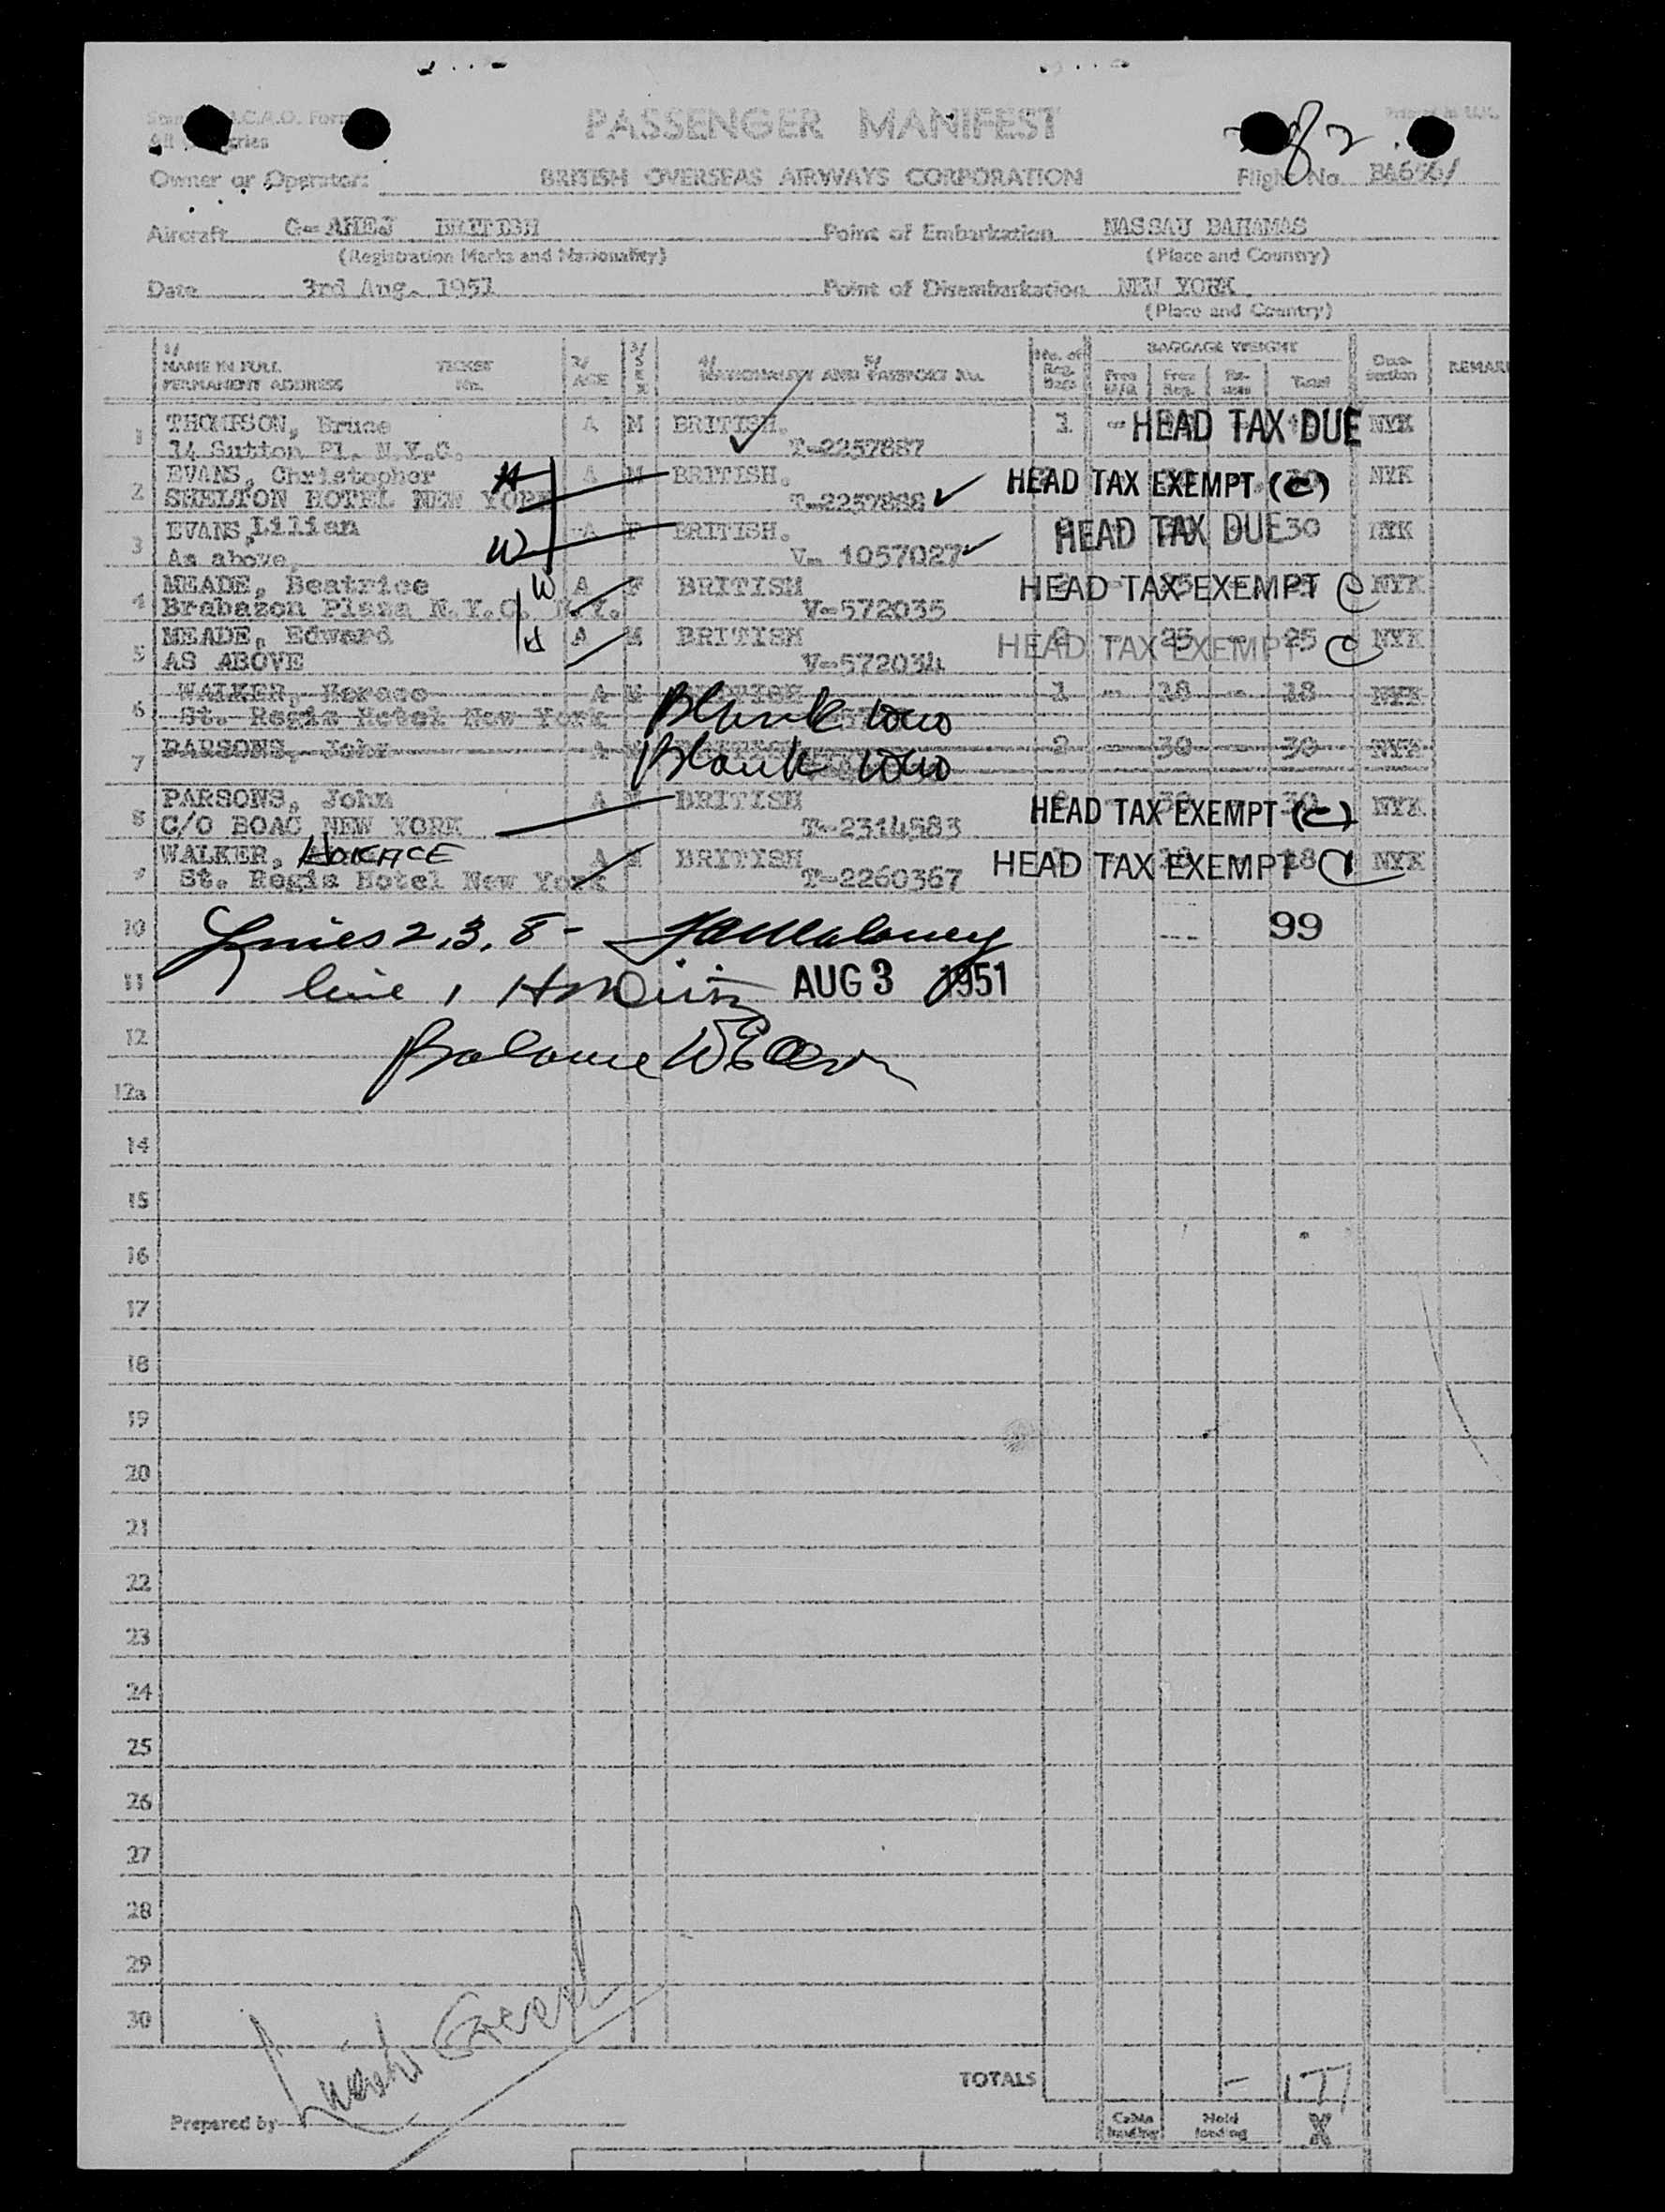 PASSENGER MANIFEST
Owner or Operator: BRITISH OVERSEAS AIRWAYS CORPORATION Flight No.
Aircraft G-AHEJ BRITISH Point of Embarkation NASSAU BAHAMAS
(Registration Marks and Nationality) (Place and Country)
Date 3rd Aug. 1951 Point of Disembarkation NEW YORK
(Place and Country)
1/ 2/ 3/ 4/ 5/ No. of Reg. Bags BAGGAGE WEIGHT
NAME IN FULL TICKET AGE SEX NATIONALITY AND PASSPORT No. Free Free Total REMAR
PERMANENT ADDRESS No. Reg.
1 THOMPSON, Bruce A M BRITISH. 1 - HEAD TAX DUE NYK
14 Sutton Pl. N.Y.C. T-2257887
2 EVANS, Christopher H A M BRITISH. HEAD TAX EXEMPT (C) NYK
SHELTON HOTEL NEW YORK T-2257888
3 EVANS, Lilian A F BRITISH. HEAD TAX DUE 30 NYK
As above, W V- 1057027
4 MEADE, Beatrice W A F BRITISH HEAD TAX EXEMPT C NYK
Brabazon Plaza N.Y.C. N.Y. V-572035
5 MEADE, Edward H A M BRITISH 2 25 - 25 HEAD TAX EXEMPT C NYK
AS ABOVE V-572034
6 WALKER, Horace A M BRITISH 1 - 18 - 18 NYK
St. Regis Hotel New York Blank
7 PARSONS, John A M 2 - 30 - 30 NYK
Blank
8 PARSONS, John A M BRITISH HEAD TAX EXEMPT (C) NYK
C/O BOAC NEW YORK T-2314583
WALKER, HORACE A M BRITISH HEAD TAX EXEMPT 18 C NYK
St. Regis Hotel New York T-2260367
10 Lines 2, 3, 8 - 99
11 line 1 AUG 3 1951
12 Balance
12a
14
15
16
17
18
19
20
21
22
23
24
25
26
27
28
29
30
TOTALS
Prepared by
Cabin loading Hold loading X